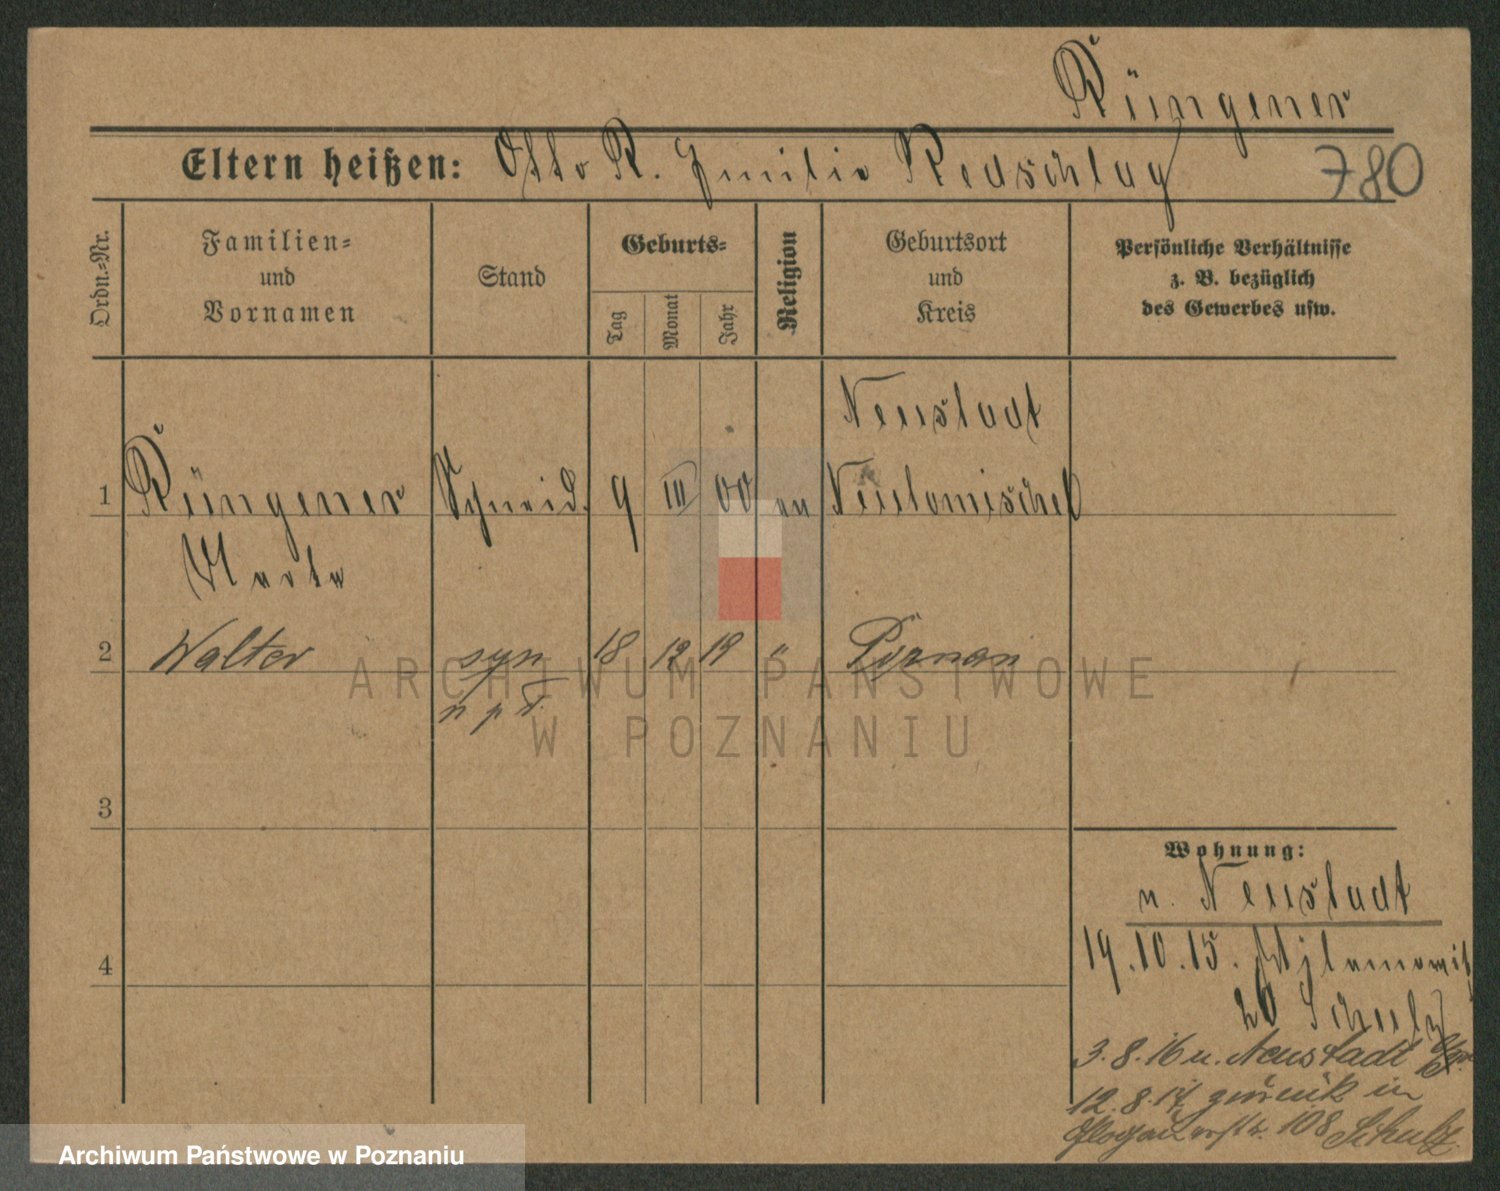 Rüngener
Eltern heißen: Otto R. Emilie Redschlag
780
Ordn.=Nr.
Familien=
und
Vornamen
Stand
Geburts=
Tag
Monat
Jahr
Religion
Geburtsort
und
Kreis
Persönliche Verhältnisse
z. B. bezüglich
des Gewerbes usw.
Neustadt
1 Rüngener Schneid. 9 III 00 ev Neutomischel
Marta
2 Walter syn 18 12 19 " Poznan
3
4
Wohnung:
n. Neustadt
19.10.15.
20 Schulz
3.8.16 n. Neustadt
12.8.17 zurück in
108 Schulz
ARCHIWUM PAŃSTWOWE
W POZNANIU
Archiwum Państwowe w Poznaniu